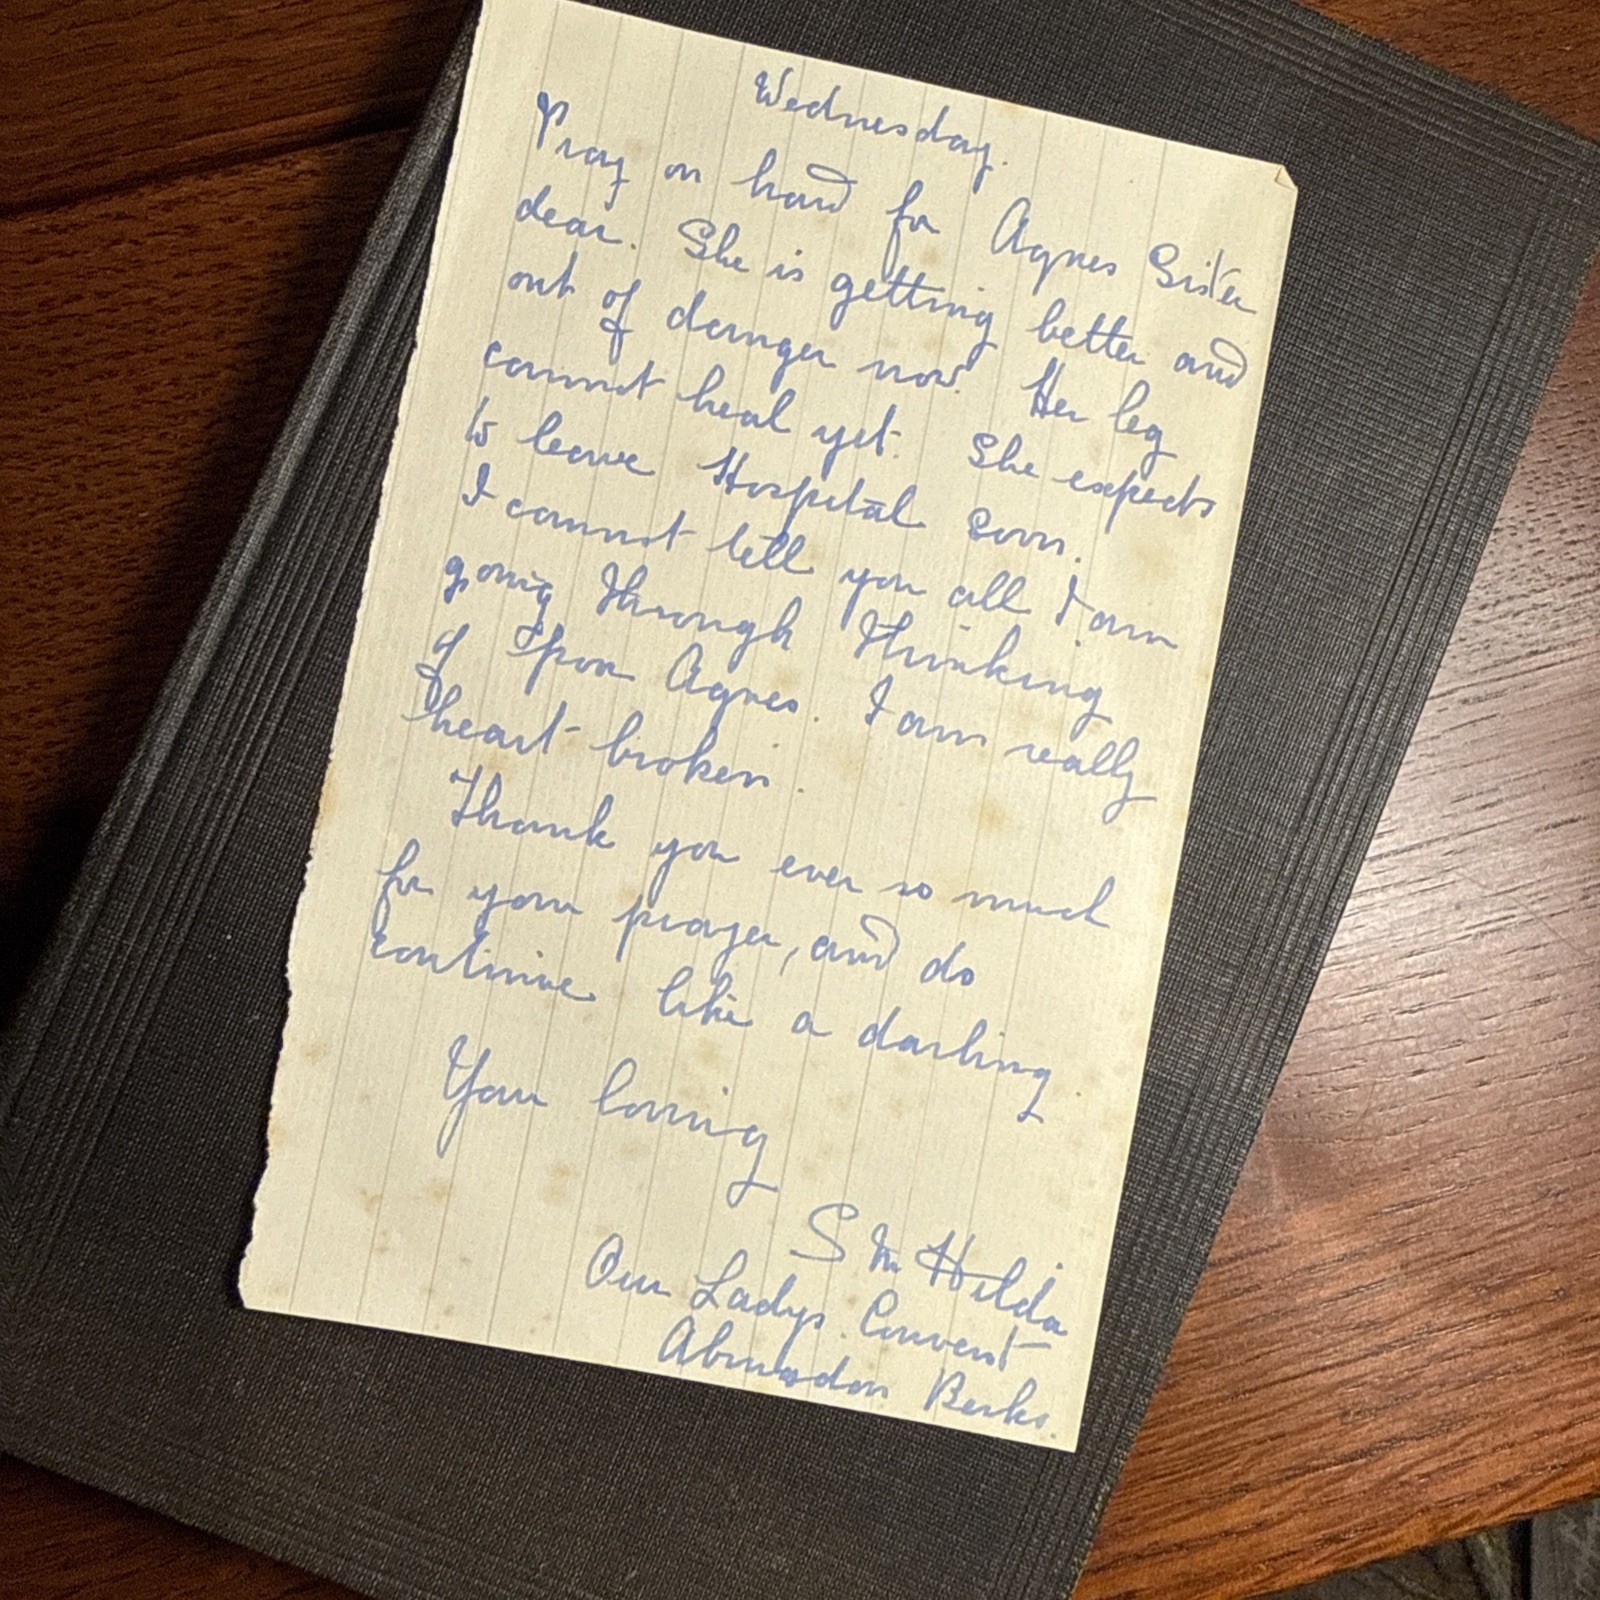 Wednesday.
Pray on hard for Agnes Sister
dear. She is getting better and
out of danger now. Her leg
cannot heal yet. She expects
to leave Hospital soon.
I cannot tell you all I am
going through thinking
of Agnes. I am really
heart broken.
Thank you ever so much
for your prayer, and do
continue like a darling
Your loving
S M Hilda
Our Ladys Convent
Abingdon Berks.